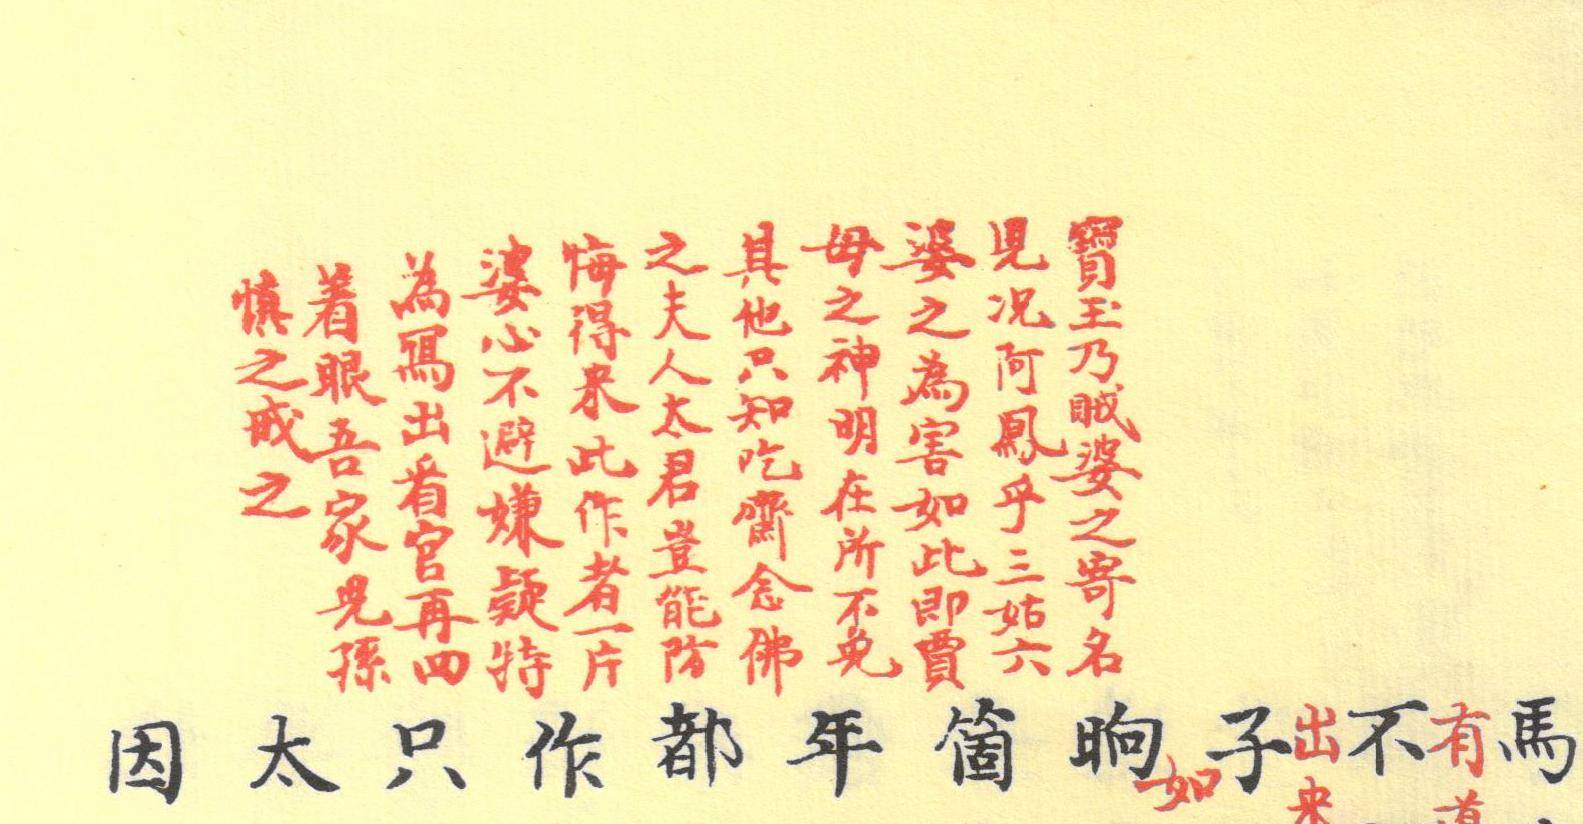 寳玉乃賊婆之寄名
児况阿鳳乎三姑六
婆之為害如此即賈
母之神明在所不免
其他只知吃齋念佛
之夫人太君豈能防
悔得来此作者一片
婆心不避嫌疑特
為寫出看官再四
着眼吾家児孫
慎之戒之
馬
有道
不
出来
子
如
晌
箇
年
都
作
只
太
因